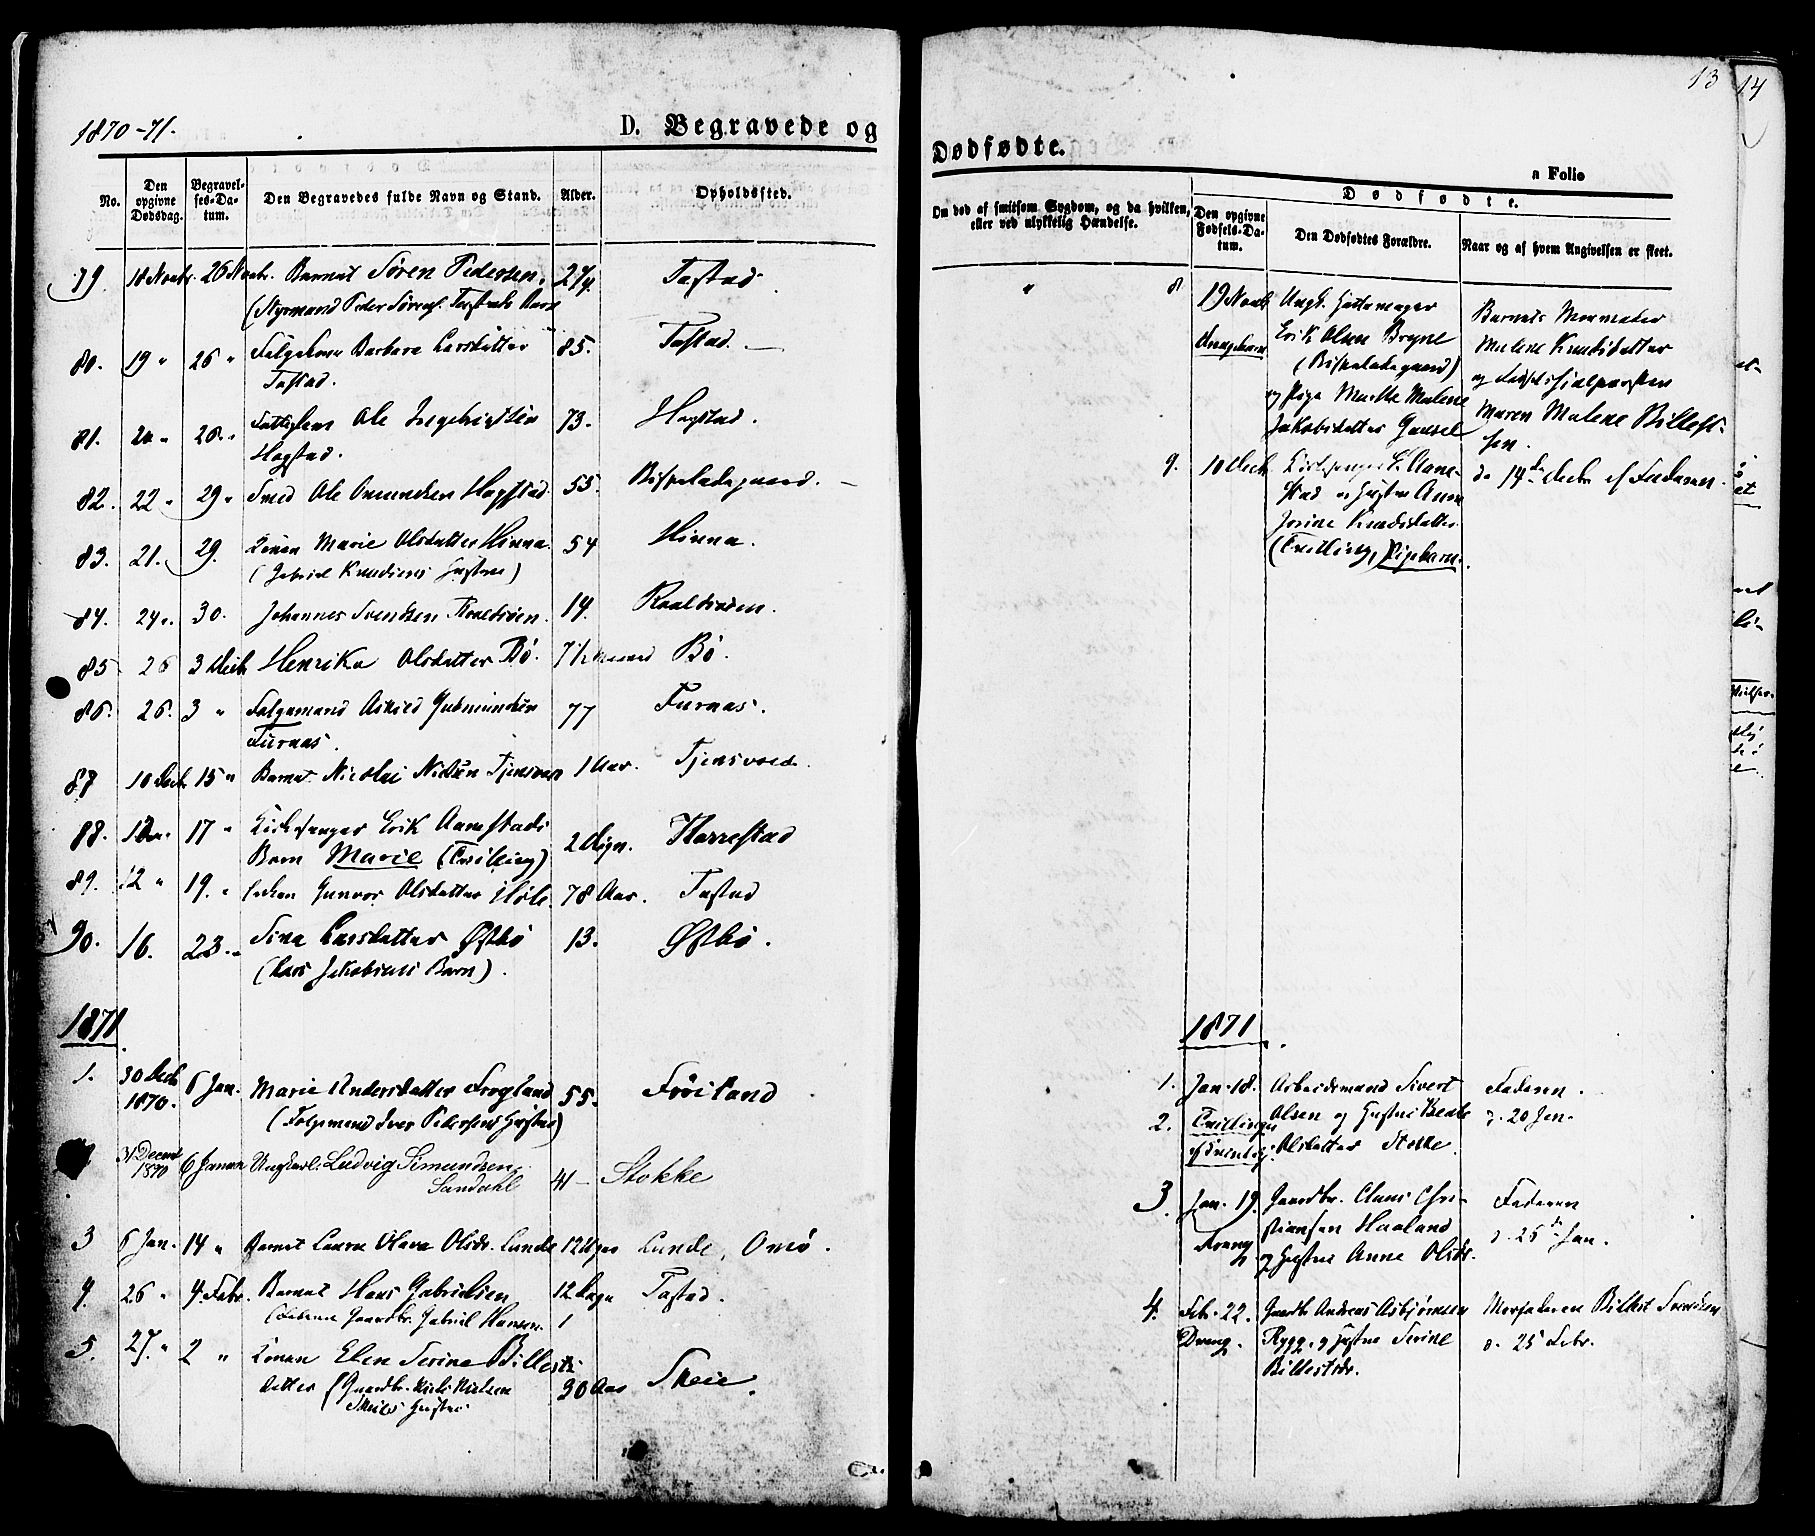 1870-71.
D. Begravede og
No.
Den opgivne Dødsdag.
Begravelses-Datum.
Den Begravedes fulde Navn og Stand.
Alder.
Opholdssted.
79. 18 Novbr. 26 Novbr. Barnet Søren Pedersen. Tastad.
(Styrmand Peder Sørens. Tastads Barn
80. 19 " 26 " Folgekone Barbara Larsdatter 85. Tastad.
Tastad.
81. 26 " Ole Ingebrigtsen 73. Hogstad.
Hogstad.
82. 22 " 29 " Smed Ole Omundsen Hogstad 55. Bispeladegaard.
83. 21. 29. Konen Marie Olsdatter Hinna 54 Hinna.
(Gabriel Knudsens Hustru)
84. 24 " 30. Johannes Svendsen Roaldsøen. 14. Roaldsøen.
85 26 3 Decb Henrika Olsdatter Bø. Bø.
86. 26. 3 " Folgemand Askild Gudmundsen 77 Furnas.
Furnas.
87 10 Decb 15 " Barnet Nicolai Nielsen 1 Aar. Tjensvold.
88. 17 " Kirkesanger Erik Aanestads 2 Harrestad
Barn Marie (Tvilling)
89. 12 " 19. " Gunvor Olsdatter 78 Aar. Tastad
90. 16. 23. " Sina Larsdatter Østbø 13. Østbø.
(Lars Jakobsens Barn).
1871.
1. 30 Decb 1870. 6 Jan. Marie Andersdatter Frogland 55. Fröiland
(Folgemand Iver Pedersens Hustru)
31 Decem 1870 6 Januar Ungkarl. Ludvig Simundsen 41 Stokke
Sandahl
3 6 Jan. 14 " Barnet Laura Olava Olsdr. Lunde 12 Lunde, Omø.
4. 26 " 4. Febr. Barnet Hans Gabrielsen 12 Dage Tastad.
(Faderen Gaardbr. Gabriel Hansen.
5. 27. " 2 " Konen Elen Serine Billests
datter (Gaardbr. Niels Nielsen 30 Aar Skeie.
Skeies Hustru
13
14
Dødfødte.
a Folio
Om død af smitsom Sygdom, og da hvilken, eller ved ulykkelig Hændelse.
Dødfødte.
Den opgivne Fødsels-Datum.
Den Dødfødtes Forældre.
Naar og af hvem Angivelsen er skeet.
8 19 Novb Ungk. Hattemager Barnets Mormoder
Drengebarn Erik Olsen Bryne Malene Knudsdatter
(Bispeladegaard)
og Pige Marthe Malene
Jakobsdatter Gausel Maren Malene Billest-
sen.
9. 10 Decb Kirkesanger E. Aane- d. 14de Decbr af Faderen.
stad og Hustru Anne
Josine Knudsdatter.
(Tvilling, Pigebarn.
1871.
1. Jan. 18. Arbeidsmand Sivert Faderen.
2. Tvillinger Olsen og Hustru Beate d. 20 Jan.
Olsdatter Stokke.
3. Jan. 19. Gaardbr. Claus Chri- Faderen
stiansen Haaland d. 25de Jan.
Dreng. og Hustru Anne Olsdr.
4. Feb. 22. Gaardb. Andreas Asbjørnsen Morfaderen Billest
Dreng. Rygg. og Hustru Serine d. 25 Febr.
Billestdr.